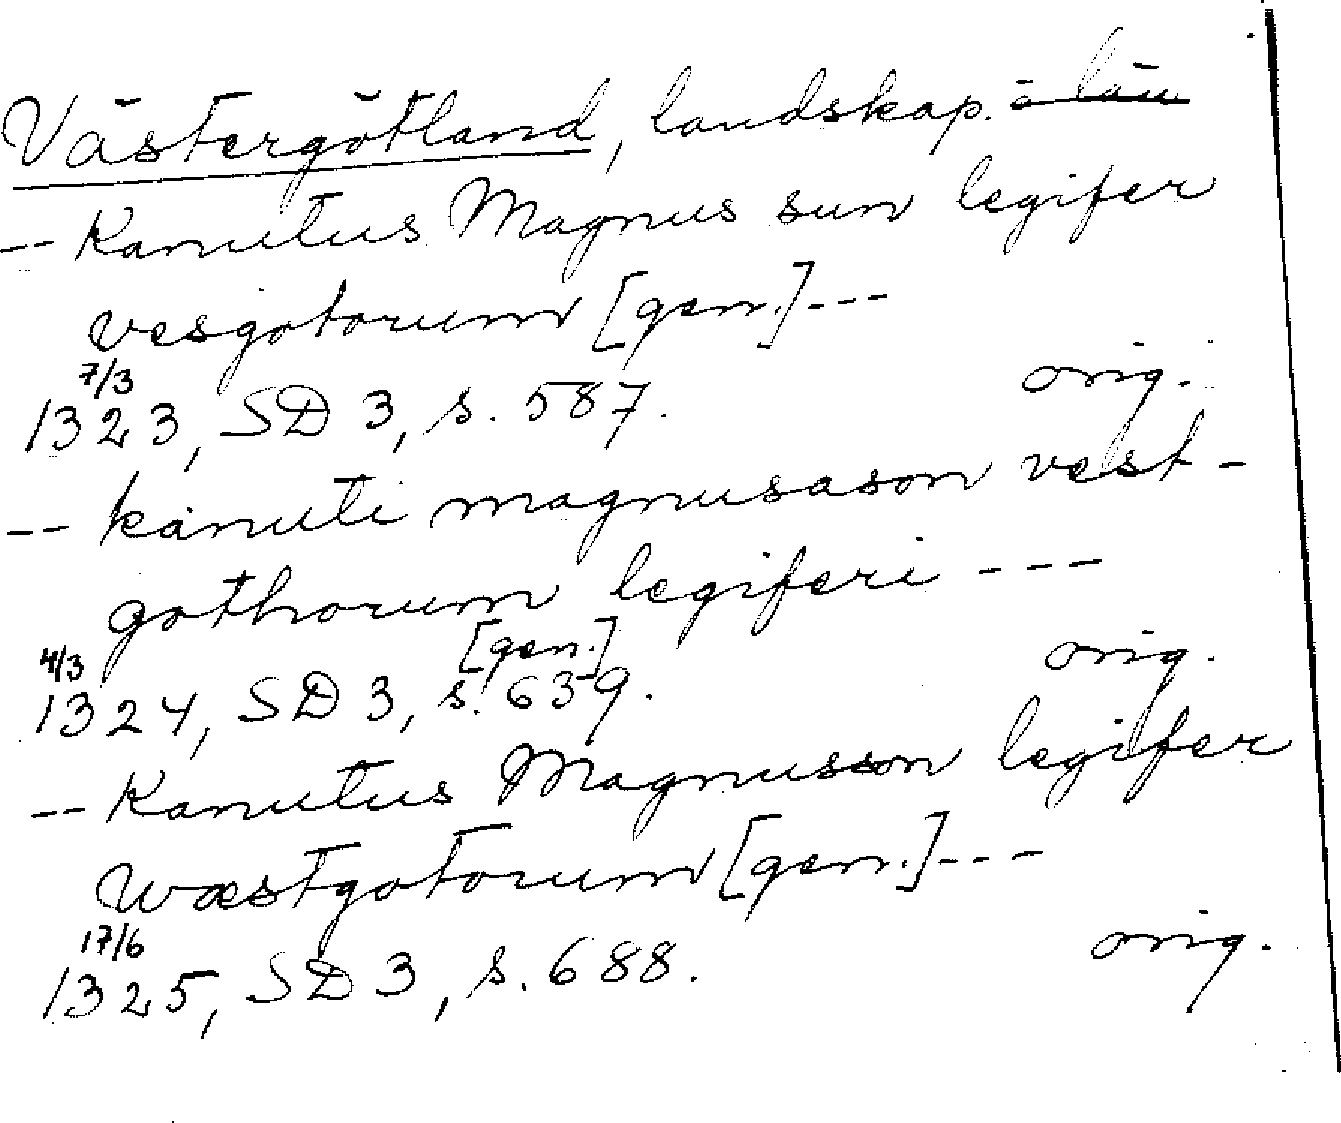 Västergötland, landskap. o län
-- Kanutus Magnus sun legifer
vesgotorum [gen.]---
7/3
1323, SD 3, s. 587. orig.
-- kanuti magnusason vest-
gothorum legiferi ---
[gen.]
4/3
1324, SD 3, s. 639. orig.
-- Kanutus Magnusson legifer
Wæstgotorum [gen.]---
17/6
1325, SD 3, s. 688. orig.